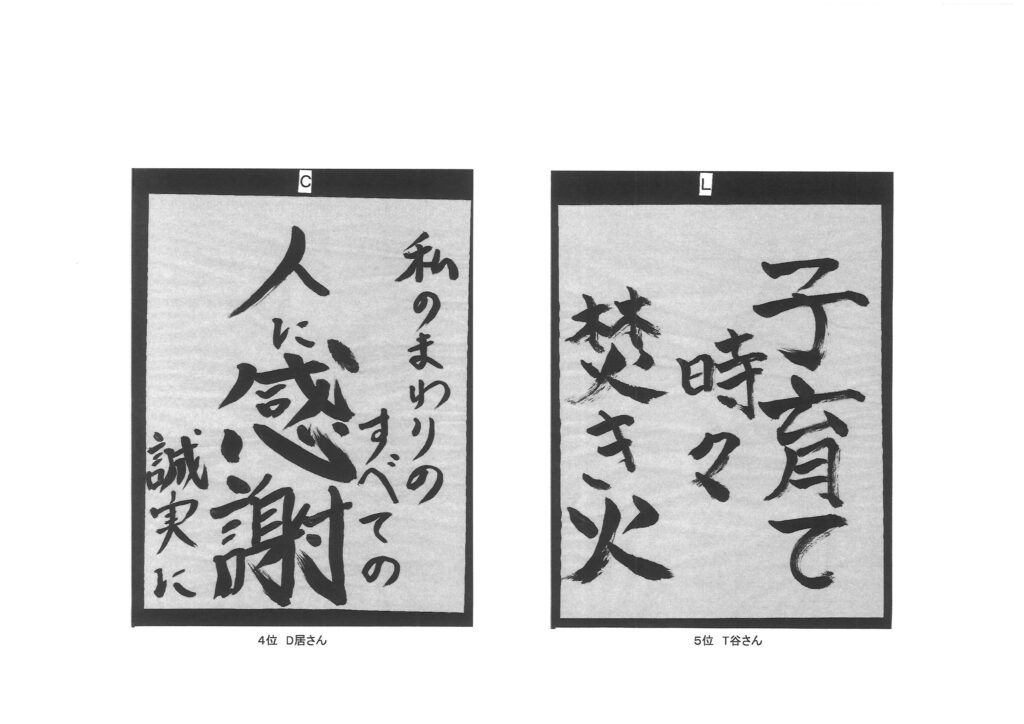 C
私のまわりの
すべての
人に感謝
誠実に
4位 D居さん
L
子育て
時々
焚き火
5位 T谷さん